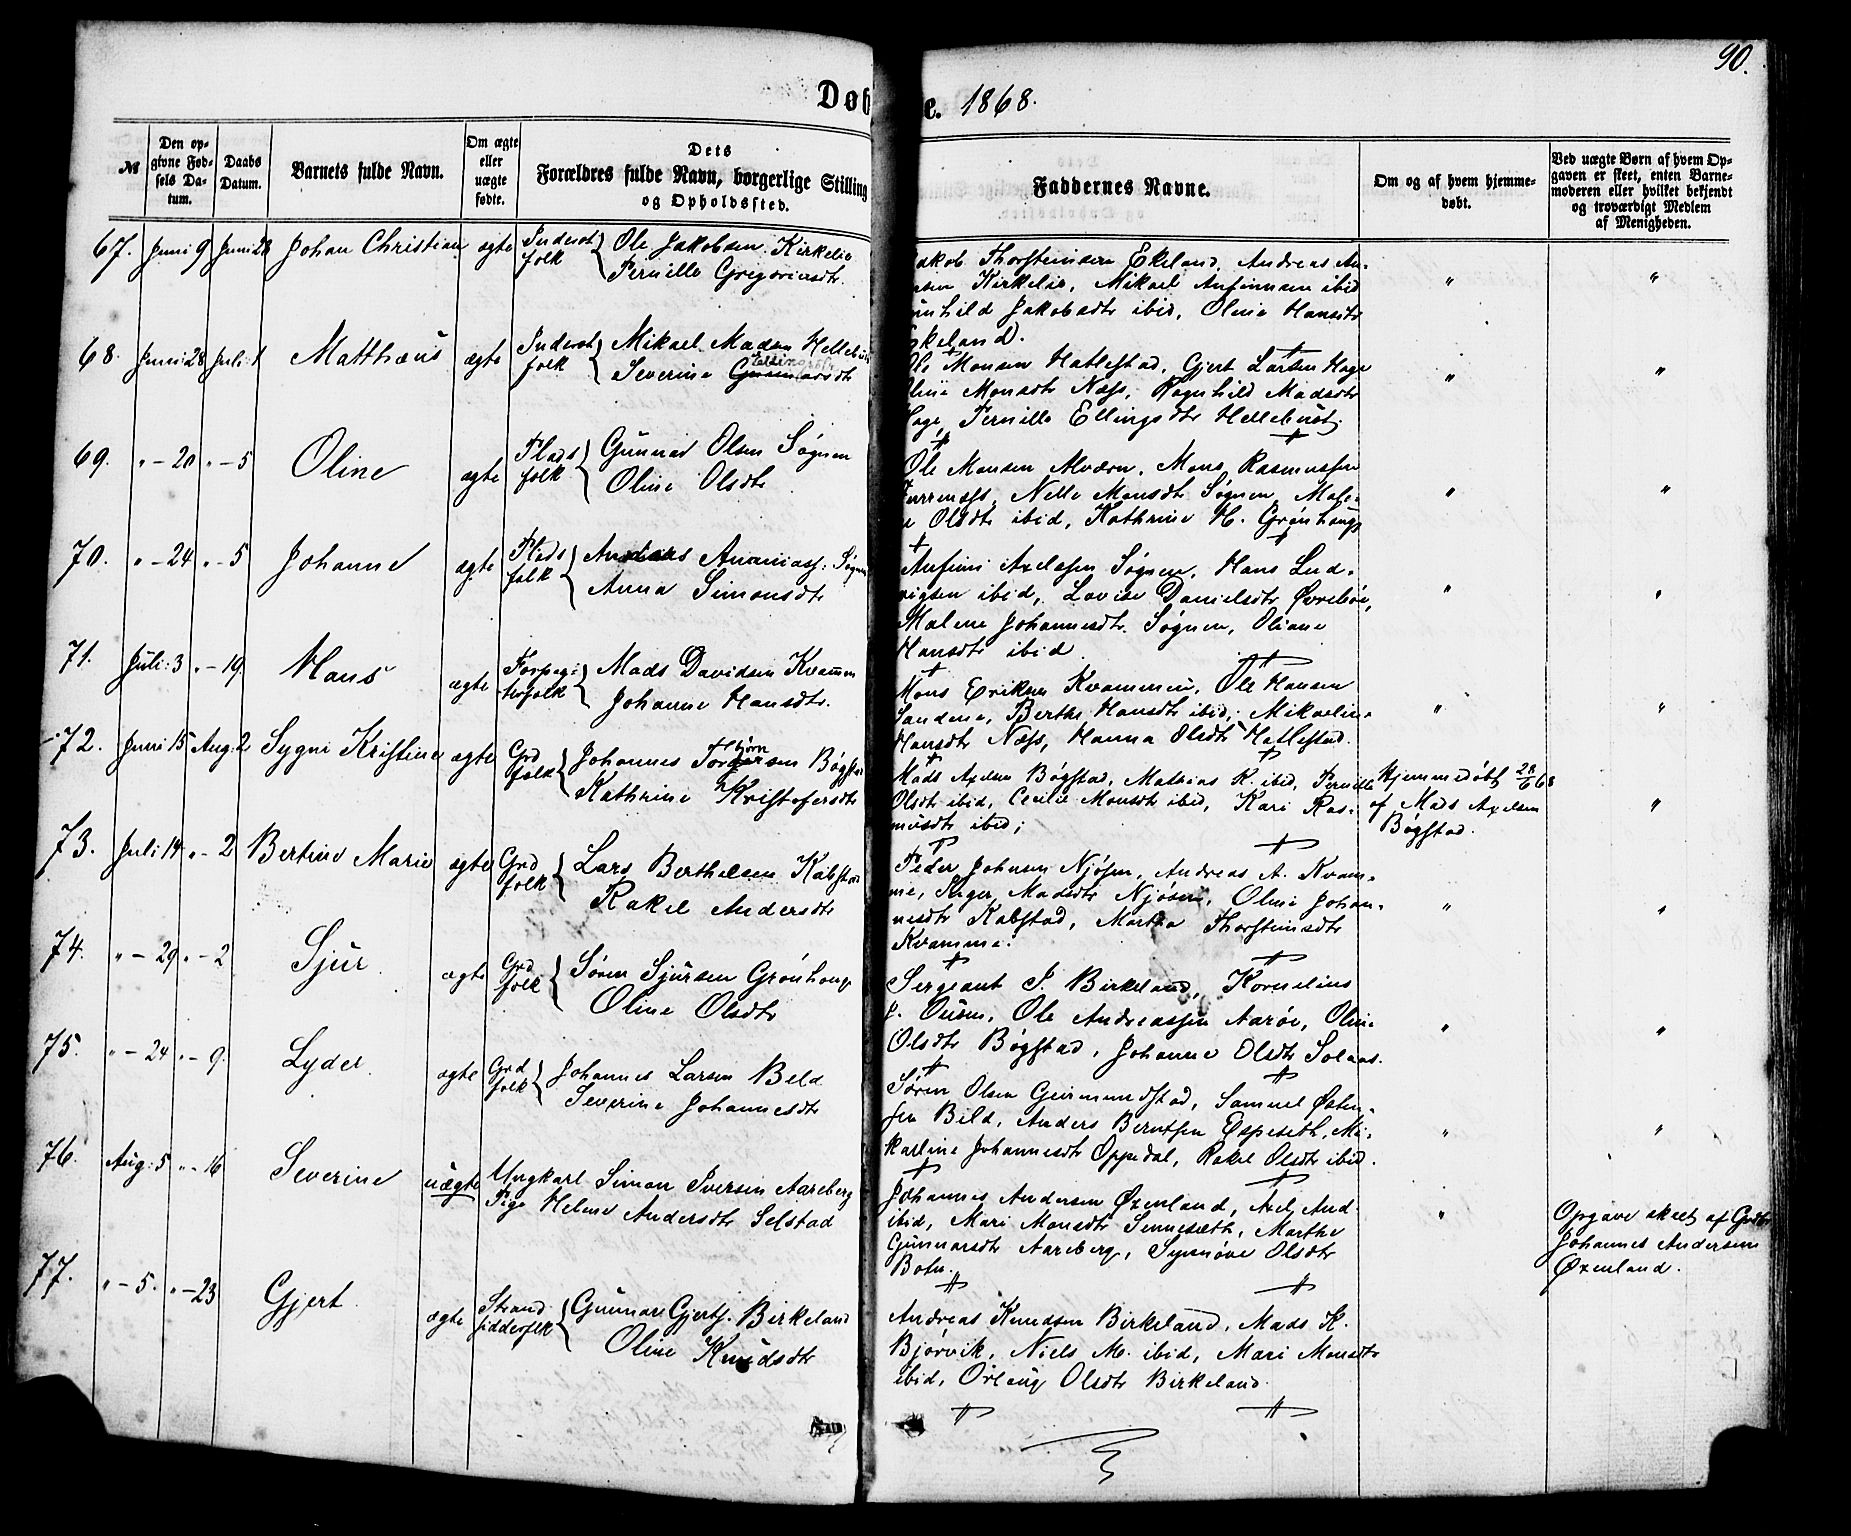 90.
Døb
e. 1868.
№
Den opgivne Fødsels Datum.
Daabs Datum.
Barnets fulde Navn.
Om ægte eller uægte fødte.
Dets
Forældres fulde Navn, borgerlige Stilling
og Opholdssted.
Faddernes Navne.
Om og af hvem hjemmedøbt.
Ved uægte Børn af hvem Opgaven er skeet, enten Barnemoderen eller hvilket bekjendt og troværdigt Medlem af Menigheden.
67. Juni 9 Juni 28 Johan Christian ægte Inderstfolk { Ole Jakobsen Kirkelie
Pernille Gregoriusdtr.
akob Thorsteinsen Ekeland, Andreas An-
sen Kirkelie, Mikael Anfinnsen ibid
unhild Jakobsdtr ibid, Oline Hansdtr
keland. " "
68. Juni 28 Juli 1 Matthæus ægte Inderstfolk { Mikael Madsen Hellebust
Severine Gunnarsdtr Ellingsdtr
Ole Monsen Hatlestad, Gjert Larsen Hage
Oline Monsdtr Næss, Ragnhild Madsdtr
Hage, Pernille Ellingsdtr Hellebust. " "
69. " - 20 " - 5 Oline ægte Pladsfolk { Gunnar Olsen Søgnen
Oline Olsdtr
Ole Monsen Alværn, Mons Rasmussen
Nelle Monsdtr Søgnen, Male-
e Olsdtr ibid, Kathrine H. Grønhaug " "
70. " - 24 " - 5 Johanne ægte Pladsfolk { Andreas Ananiass. Søgnen
Anna Simonsdtr
Anfinn Axelsen Søgnen, Hans Lud-
vigsen ibid, Lovise Danielsdtr Øvrebøe,
Malene Johannesdtr. Søgnen, Oliane
Hansdtr ibid. " "
71. Juli 3 " - 19 Hans ægte Forpagterfolk { Mads Davidsen Kvammen
Johanne Hansdtr.
Mons Eriksen Kvammen, Ole Hansen
Sandene, Berthe Hansdtr ibid, Mikaeline
Hansdtr Næss, Hanna Olsdtr Hatlestad. " "
72. Juni 15 Aug: 2 Sygni Kristine ægte Grdfolk { Johannes Torbjørnsen Bøgstad
Kathrine Kristofersdtr
Mads Axelsen Bøgstad, Mathias K. ibid, Pernille
Olsdtr ibid, Cecilie Monsdtr ibid, Kari Ras-
musdtr ibid;
Hjemmedøbt 28/6 68
af Mads Axelsen
Bøgstad. "
73. Juli 14 " - 2 Bertine Marie ægte Grdfolk { Lars Berthelsen Kalstad
Rakel Andersdtr
Peder Johnsen Njøsen, Andreas A. Kvam-
me, Inger Madsdtr Njøsen, Oline Johan-
nesdtr Kalstad, Martha Thorsteinsdtr
Kvamme. " "
74. " - 29 " - 2 Sjur ægte Grdfolk { Søren Sjursen Grønhaug
Oline Olsdtr
Sergeant P. Birkeland, Kornelius
J. Ousen, Ole Andreassen Aarøe, Oline
Olsdtr Bøgstad, Johanne Olsdtr Solaas. " "
75. " - 24 " - 9. Lyder ægte Grdfolk { Johannes Larsen Beld
Severine Johannesdtr
Søren Olsen Geirmundstad, Samuel Østen-
sen Bild, Anders Berntsen Espeseth, Ma-
karline Johannesdtr Oppedal, Rakel Olsdtr ibid. " "
76. Aug: 5 " - 16 Severine uægte Ungkarl Simon Iversen Aareberg
Pige Helene Andersdtr Selstad
Johannes Andersen Øxenland, Axel And.
ibid, Mari Monsdtr Sennesæth, Marthe
Gunnarsdtr Aareberg, Synnøve Olsdtr
Botn. "
Opgave skeet af Grdbr
Johannes Andersen
Øxenland.
77. " - 5. " - 23 Gjert ægte Strandsidderfolk { Gunnar Gjerts. Birkeland
Oline Knudsdtr
Andreas Knudsen Birkeland, Mads K.
Bjørvik, Niels M. ibid, Mari Monsdtr
ibid, Ørlaug Olsdtr Birkeland.